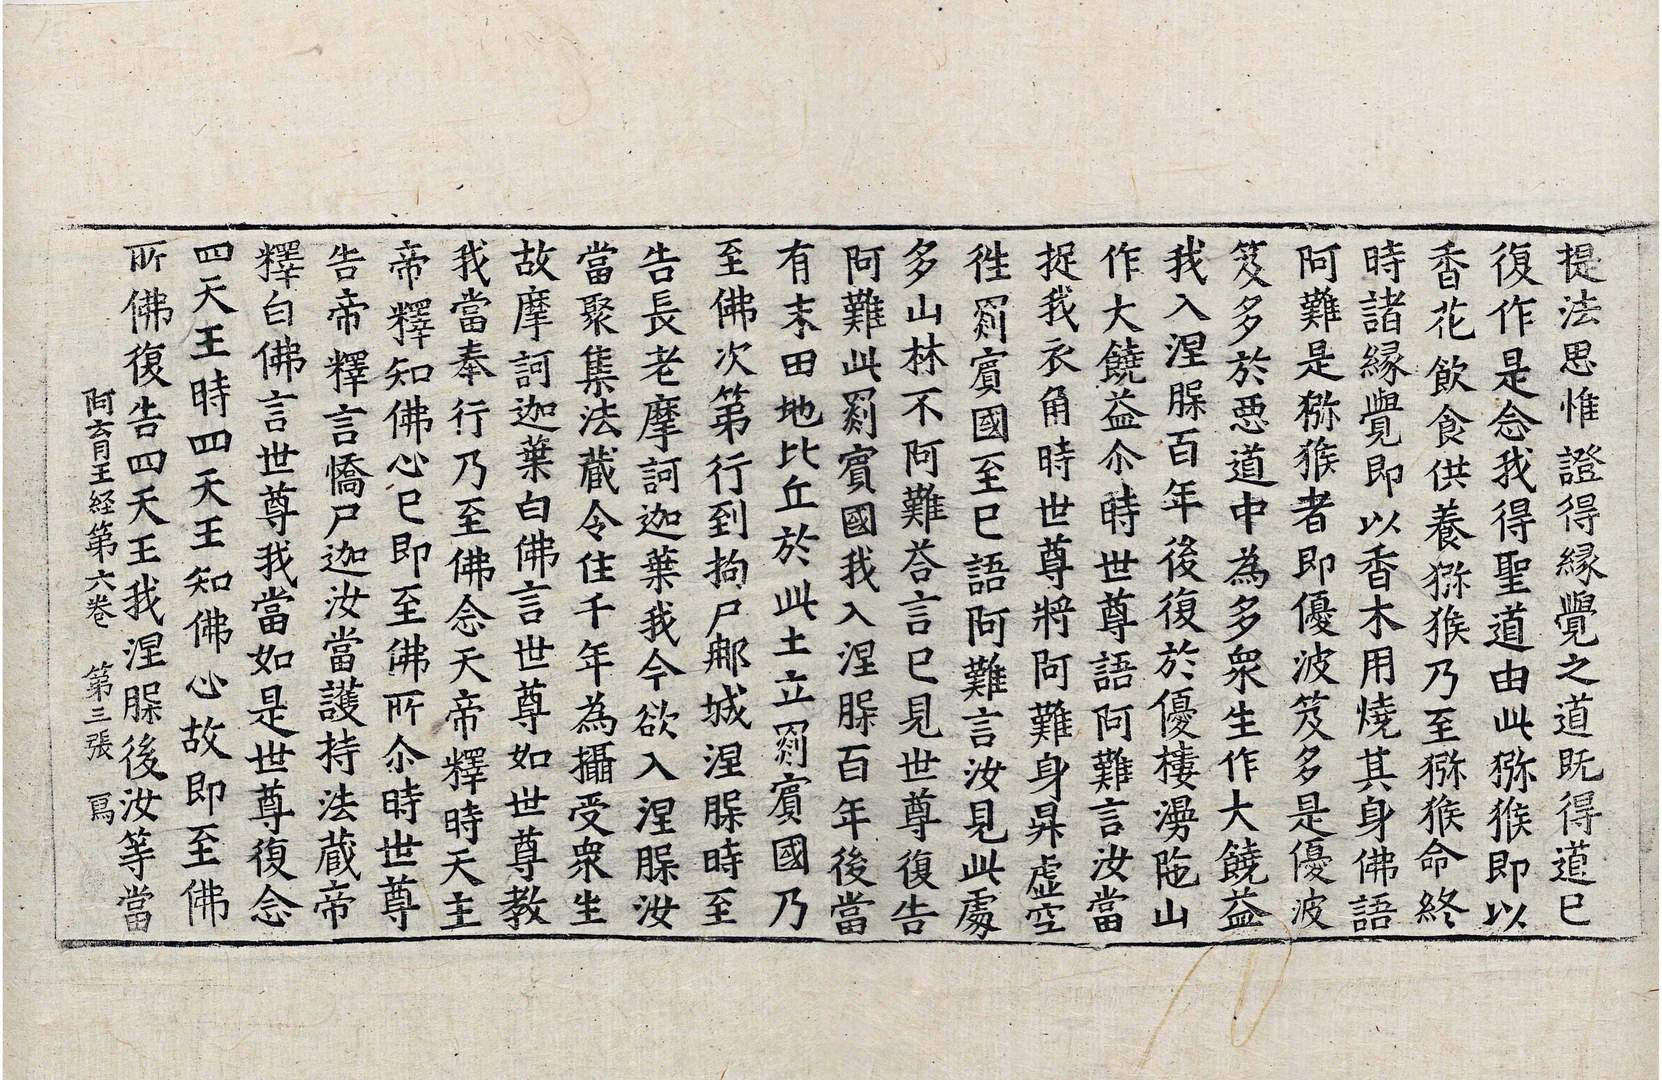 提法思惟證得縁覺之道既得道已
復作是念我得聖道由此猕猴即以
香花飲食供養猕猴乃至猕猴命終
時諸縁覺即以香木用燒其身佛語
阿難是猕猴者即優波笈多是優波
笈多於惡道中為多衆生作大饒益
我入涅槃百年後復於優樓漫陁山
作大饒益尒時世尊語阿難言汝當
捉我衣角時世尊將阿難身昇虚空
徃罽賓國至已語阿難言汝見此處
多山林不阿難荅言已見世尊復告
阿難此罽賓國我入涅槃百年後當
有末田地比丘於此土立罽賓國乃
至佛次第行到拘尸那城涅槃時至
告長老摩訶迦葉我今欲入涅槃汝
當聚集法藏令住千年為攝受衆生
故摩訶迦葉白佛言世尊如世尊教
我當奉行乃至佛念天帝釋時天主
帝釋知佛心已即至佛所尒時世尊
告帝釋言憍尸迦汝當護持法藏帝
釋白佛言世尊我當如是世尊復念
四天王時四天王知佛心故即至佛
所佛復告四天王我涅槃後汝等當
阿育王経第六卷 第三張 寫